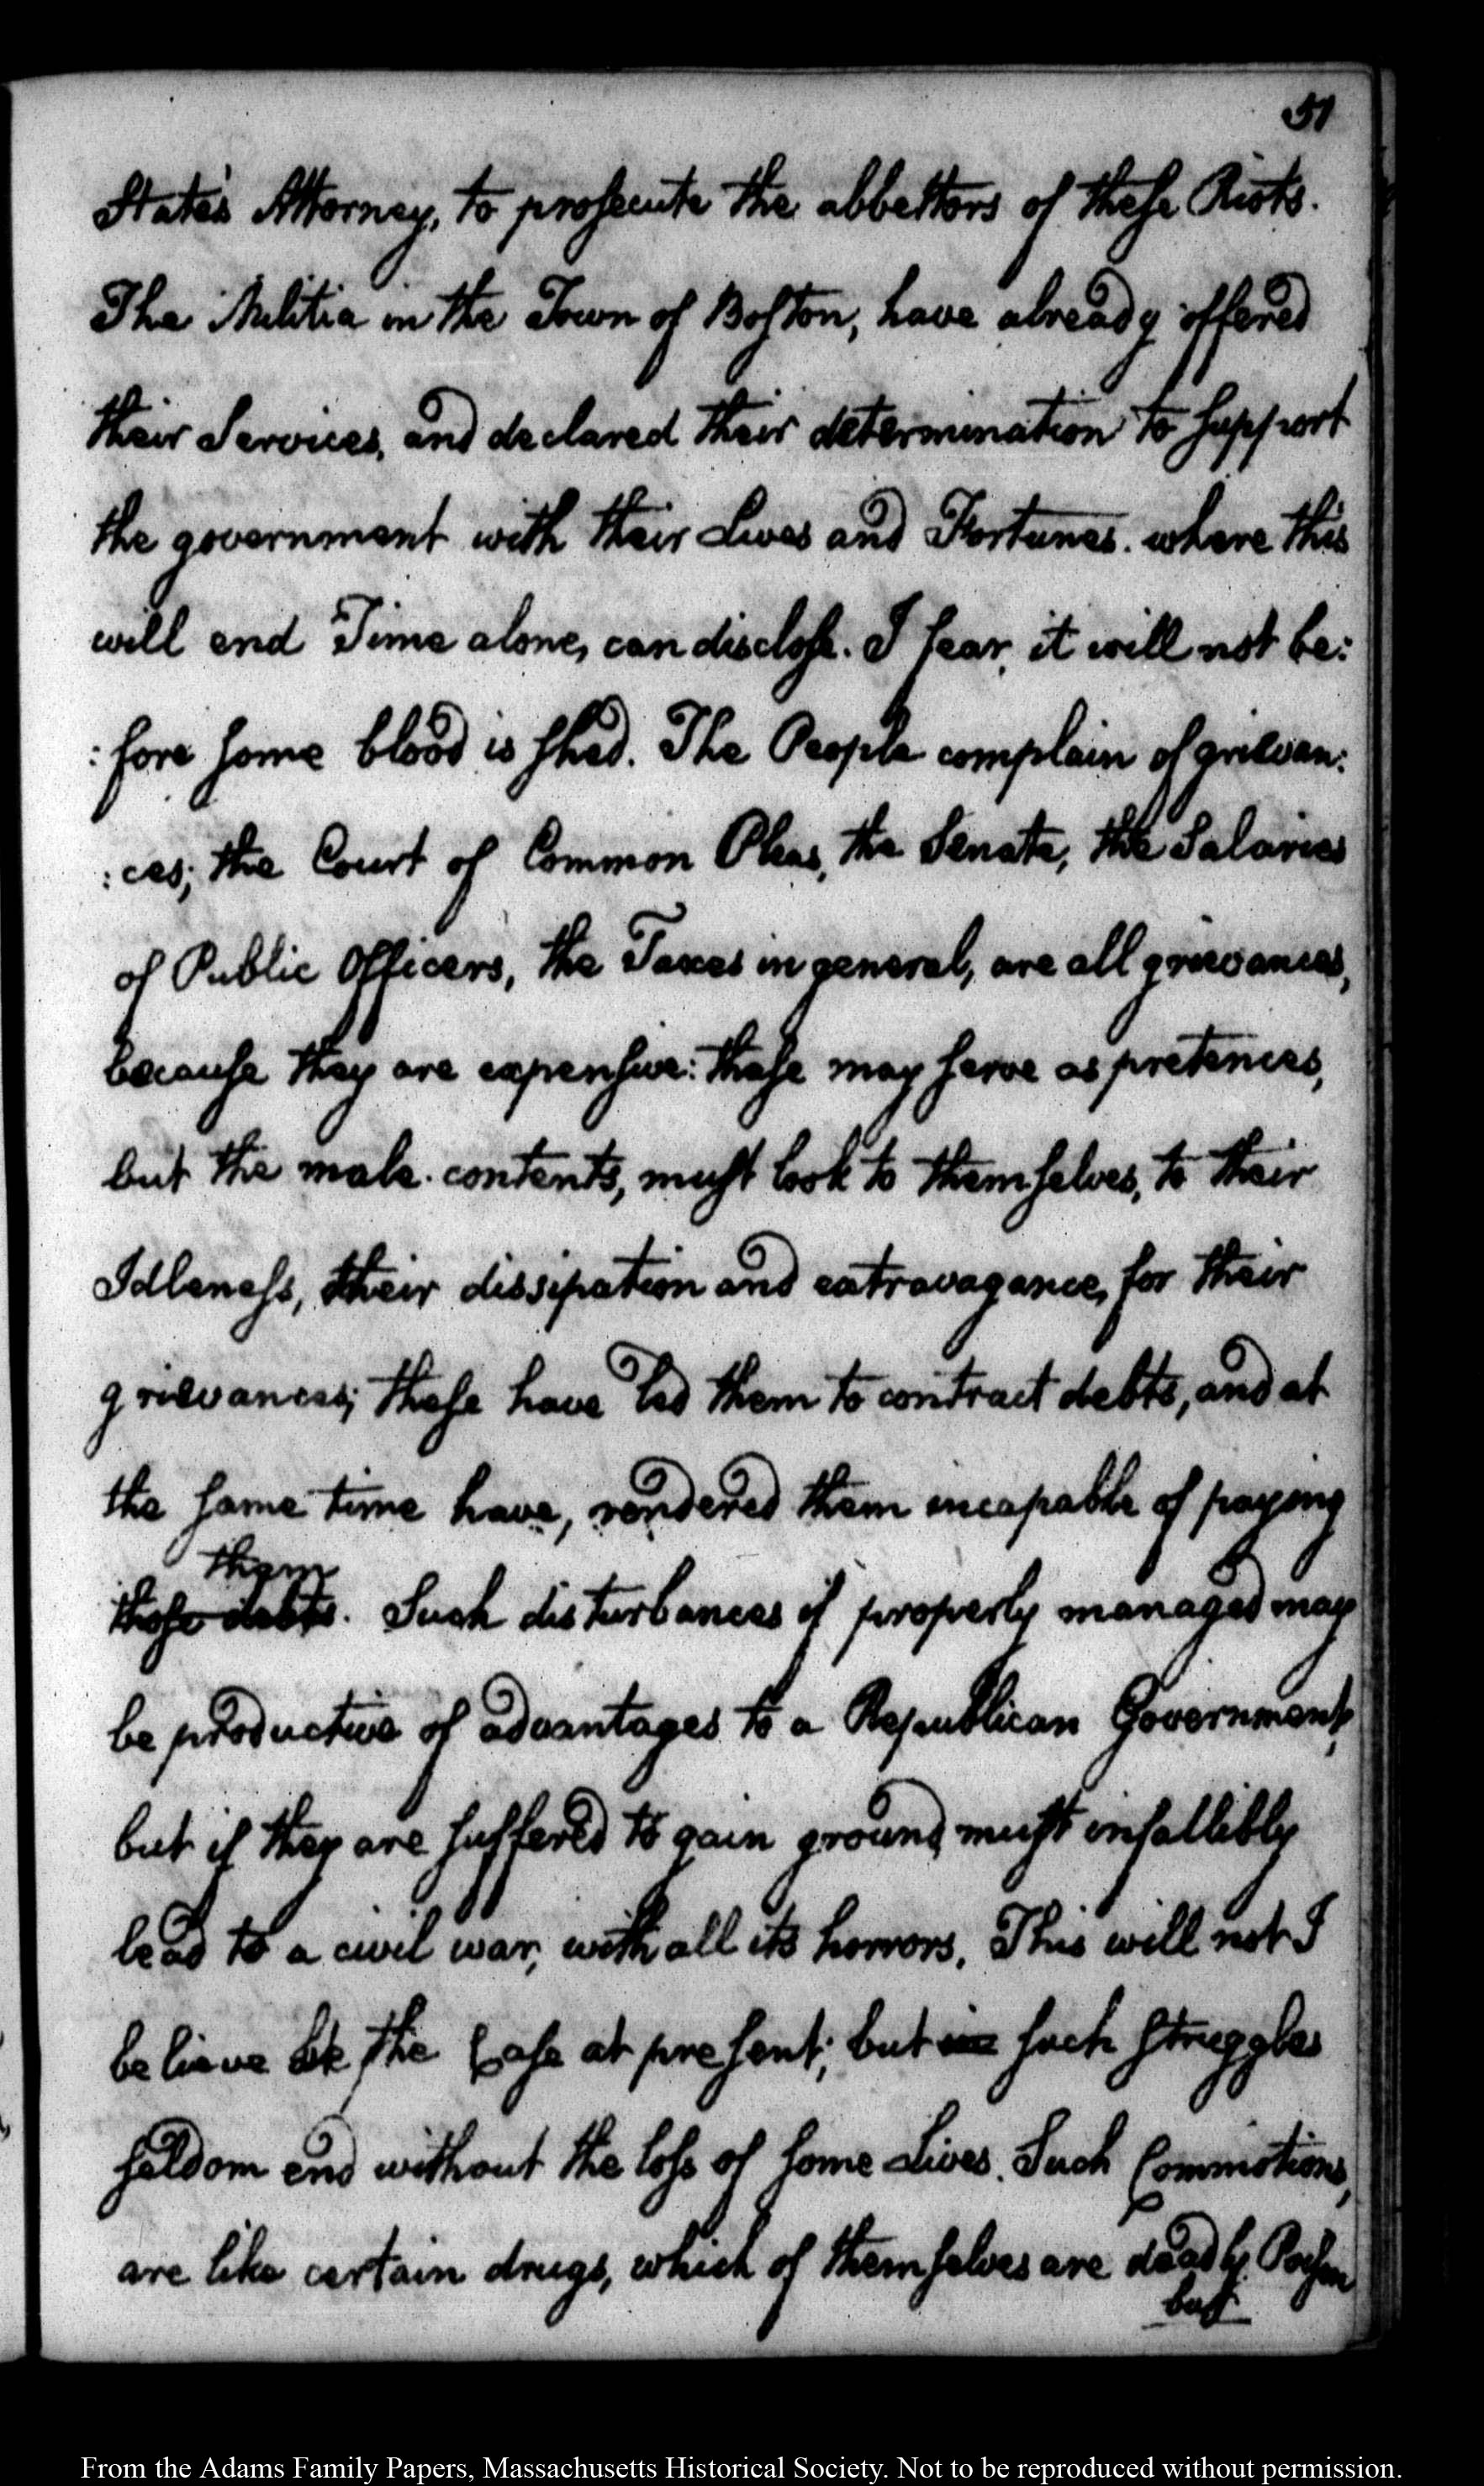 51
State's Attorney, to prosecute the abbettors of these Riots.
The Militia in the Town of Boston, have already offered
their Services, and declared their determination to support
the government with their Lives and Fortunes. where this
will end Time alone, can disclose. I fear, it will not be:
:fore some blood is shed. The People complain of grievan:
:ces; the Court of Common Pleas, the Senate, the Salaries
of Public Officers, the Taxes in general, are all grievances,
because they are expensive: these may serve as pretences,
but the male-contents, must look to themselves, to their
Idleness, their dissipation and extravagance, for their
grievances; these have led them to contract debts, and at
the same time have, rendered them incapable of paying
them
those debts. Such disturbances if properly managed may
be productive of advantages to a Republican Government,
but if they are suffered to gain ground, must infallibly
lead to a civil war, with all its horrors. This will not I
believe be the Case at present; but such struggles
seldom end without the loss of some Lives. Such Commotions,
are like certain drugs, which of themselves are deadly Poison
but
From the Adams Family Papers, Massachusetts Historical Society. Not to be reproduced without permission.